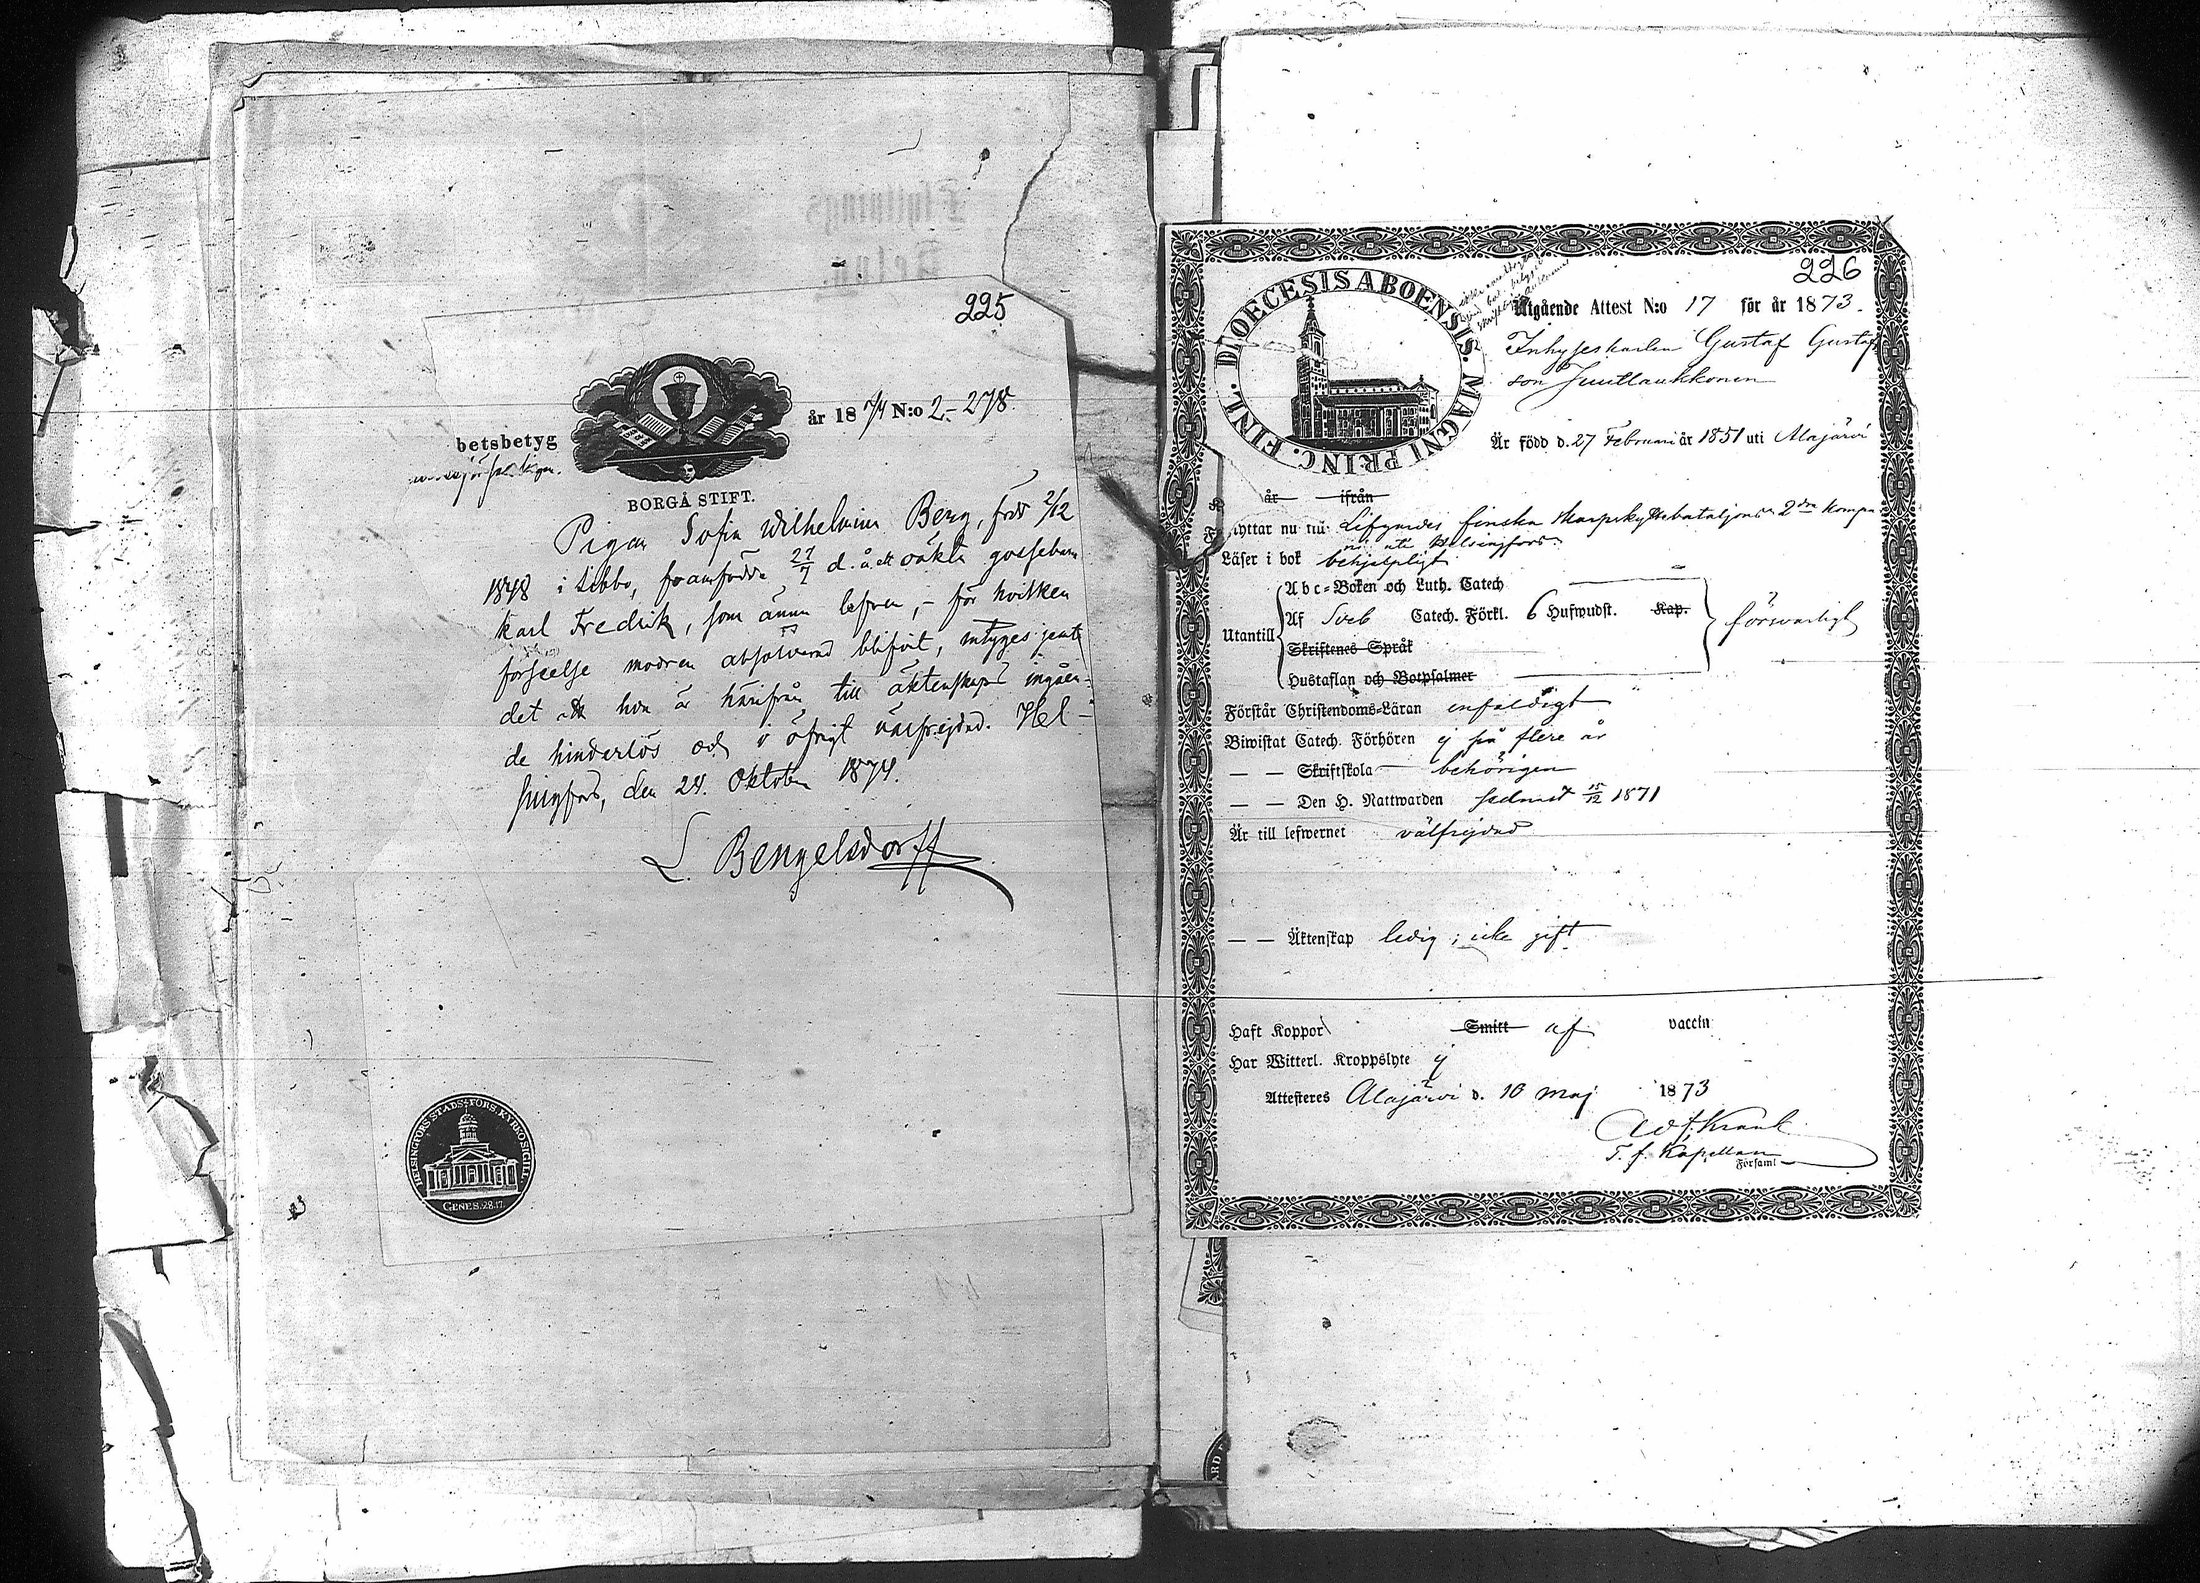 225
år 1874 N:o 2-278.
betsbetyg
BORGÅ STIFT.
Pigan Sofia Wilhelmina Berg, född 2/12
1848 i Sibbo, framfödde 27/7 d. å. ett oäkta gossebarn
Karl Fredrik, som ännu lefver, – för hvilken
förseelse modren absolverad blifvit, intygas jemte
det att hon är härifrån till äktenskaps ingåen-
de hinderlös och i öfrigt välfrejdad. Hel-
singfors, den 24. Oktober 1874.
L. Bengelsdorff
HELSINGFORS STADS-FÖRS. KYRKOSIGILL.
GENES. 28.17.
226
FINL. DIOECESIS ABOENSIS. MAGNI PRINC.
Utgående Attest N:o 17 för år 1873.
Inhyseskarlen Gustaf Gustaf
son Juutlaukkonen
Är född d. 27 Februari år 1851 uti Alajärvi
år ifrån
Flyttar nu till Lifgardes finska Skarpskyttebataljons 2dra Kompa
ni uti Helsingfors.
Läser i bok behjelpligt
Abc-Boken och Luth. Catech
Utantill
Af Sveb Catech. Förkl. 6 Hufwudst. Kap.
försvarligt
Skriftenes Språk
Hustaflan och Botpsalmer
Förstår Christendoms-Läran enfaldigt
Biwistat Catech. Förhören ej på flere år
— — Skriftskola behörigen
— — Den H. Nattwarden sednast 15/12 1871
Är till lefwernet välfrejdad
— — Äktenskap ledig; icke gift
Haft Koppor Smitt af vaccin
Har Witterl. Kroppslyte ej
Attesteres Alajärvi d. 10 Maj 1873
Adf. Krank
T. f. Kapellan
Församl